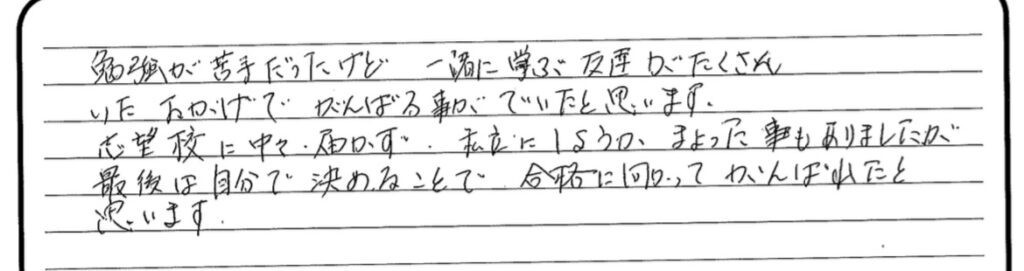 勉強が苦手だったけど 一緒に学ぶ友達がたくさん
いたおかげで がんばる事ができたと思います。
志望校に中々届かず、私立にしようか、まよった事もありましたが
最後は自分で決めることで 合格に向かってがんばれたと
思います。